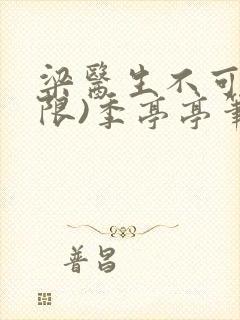 梁醫生不可
限)季亭亭筆
普昌